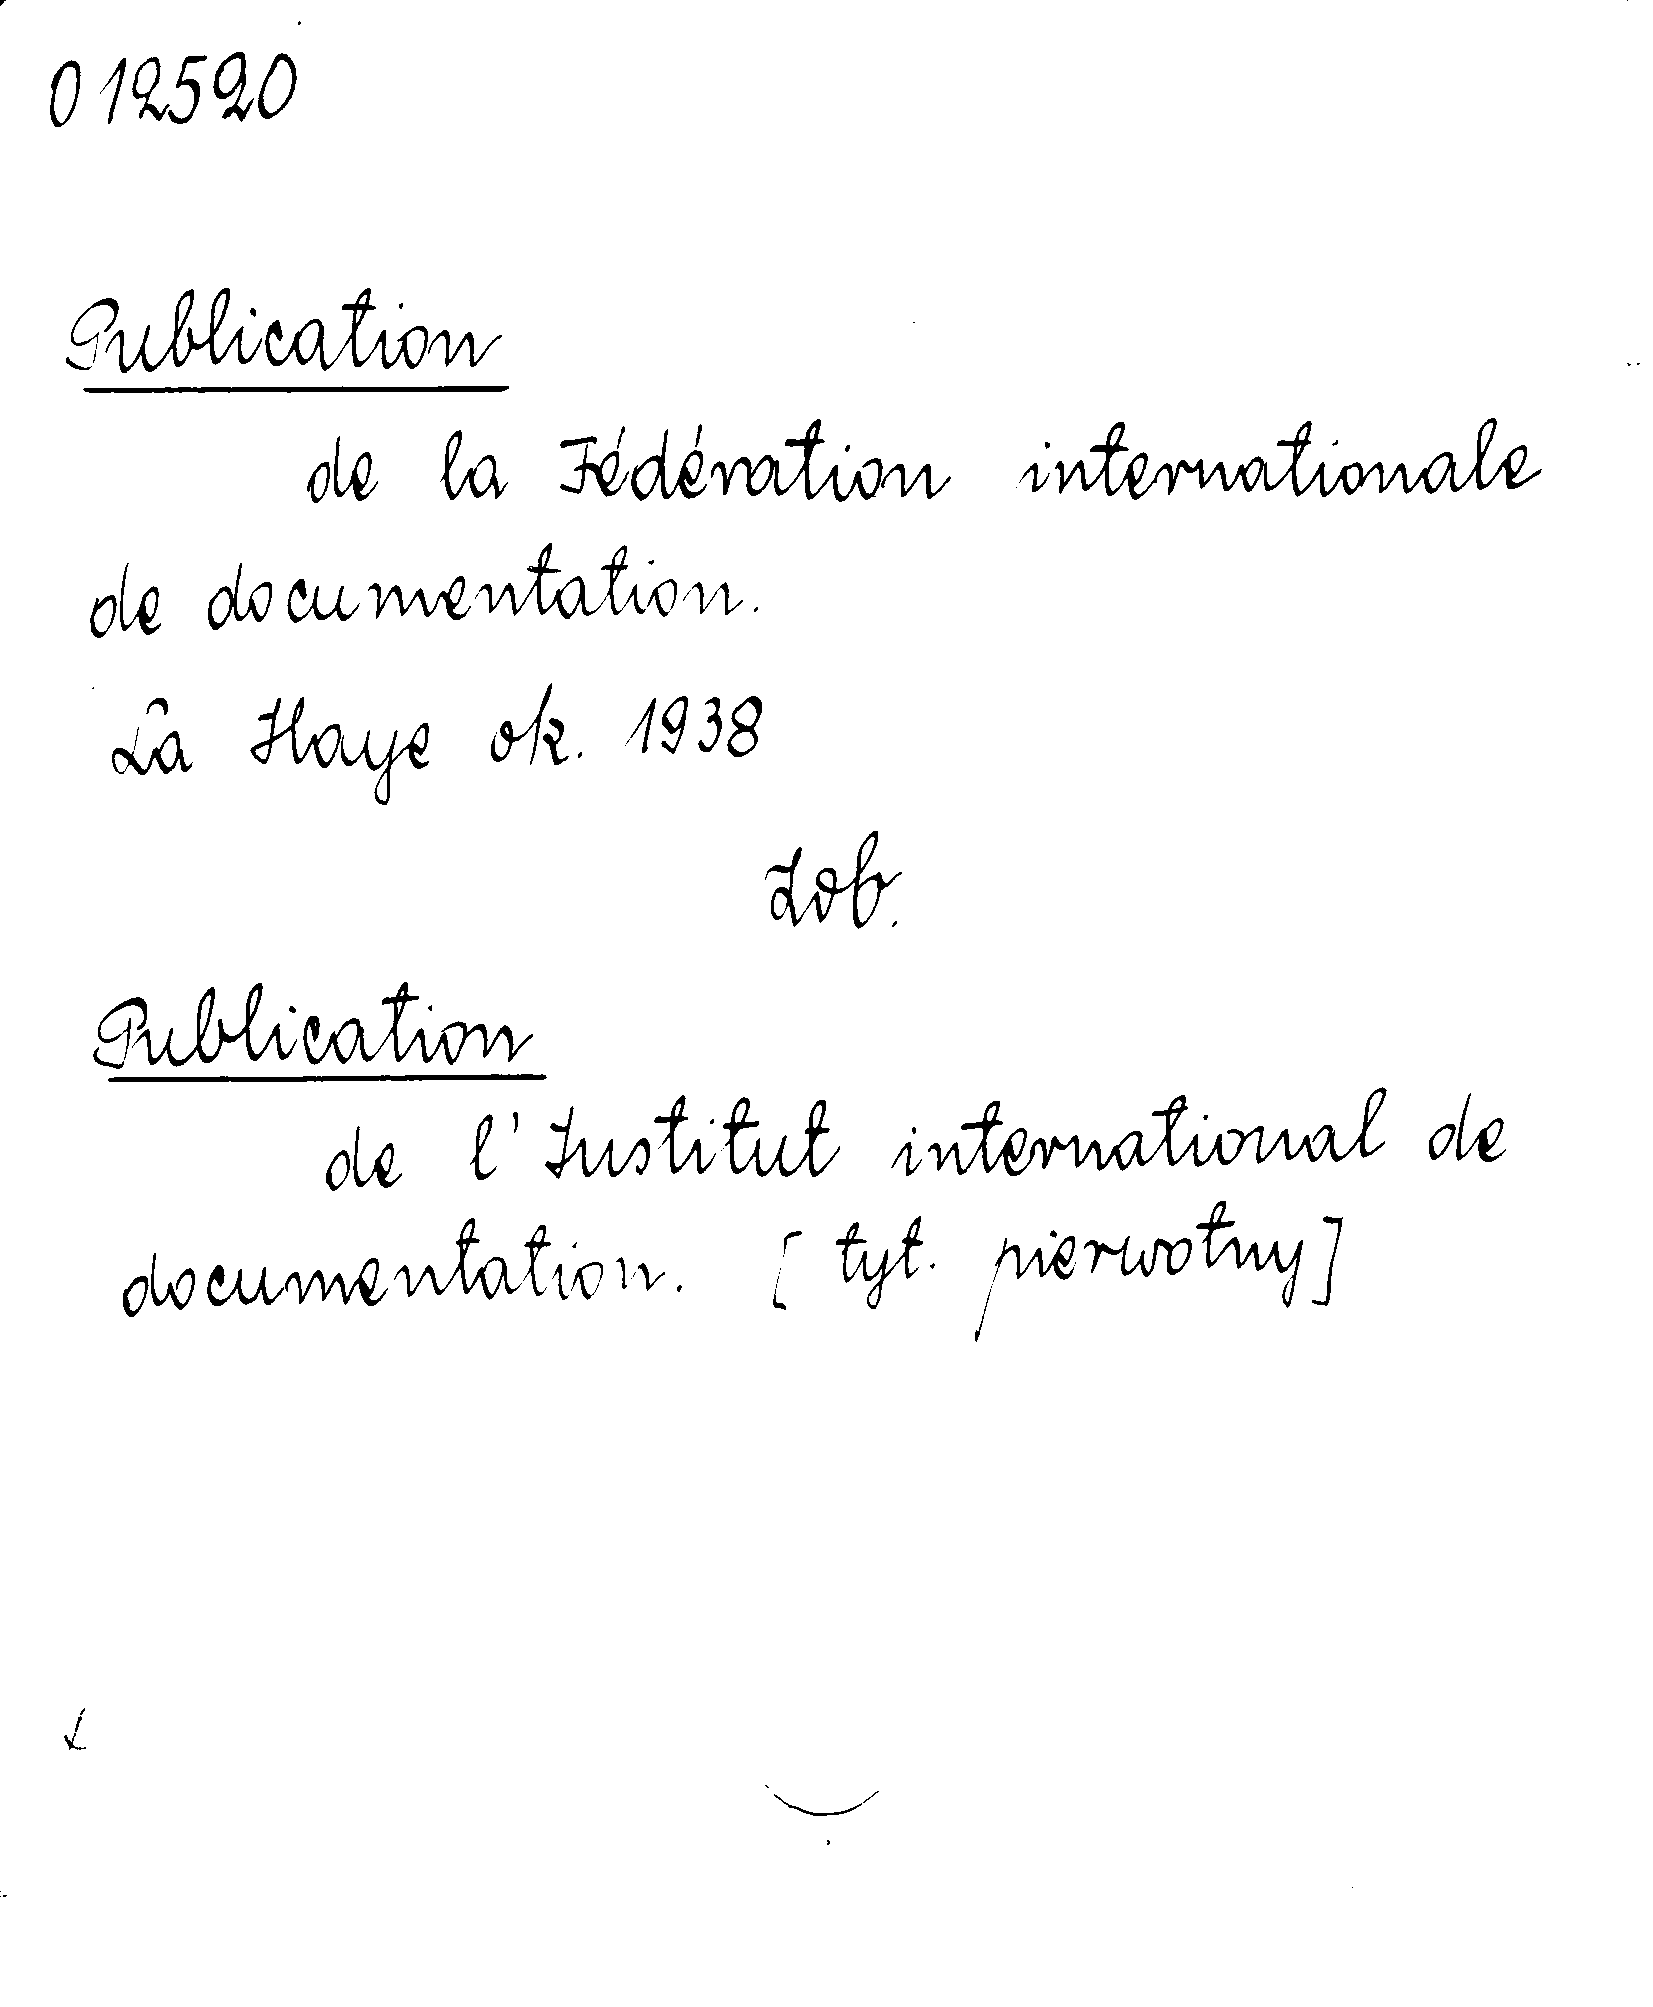 012520
Publication
de la Fédération internationale
de documentation.
La Haye ok. 1938
Zob.
Publication
de l'Institut international de
documentation. [tyt. pierwotny]